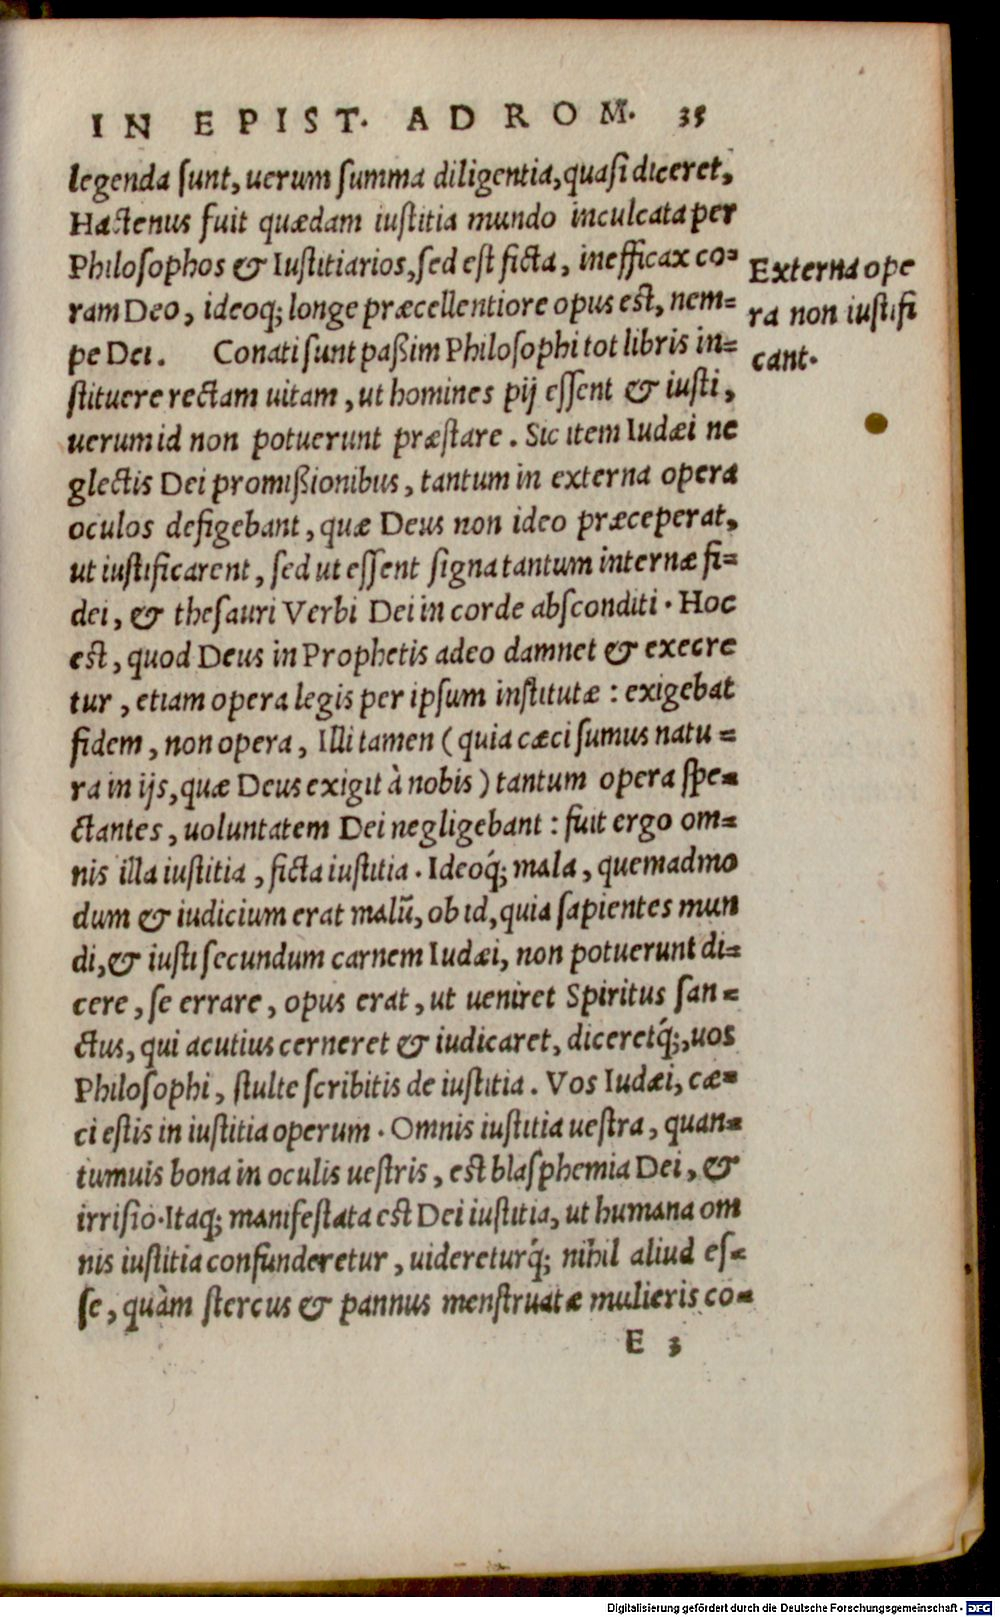 IN EPIST. AD ROM. 35
legenda ſunt, uerum ſumma diligentia, quaſi diceret,
Hactenus fuit quædam iuſtitia mundo inculcata per
Philoſophos & Iuſtitiarios, ſed eſt ficta, inefficax co=
ram Deo, ideoq; longe præcellentiore opus eſt, nem=
pe Dei. Conati ſunt paßim Philoſophi tot libris in=
ſtituere rectam uitam, ut homines pij eſſent & iuſti,
uerum id non potuerunt præſtare. Sic item Iudæi ne
glectis Dei promißionibus, tantum in externa opera
oculos defigebant, quæ Deus non ideo præceperat,
ut iuſtificarent, ſed ut eſſent ſigna tantum internæ fi=
dei, & theſauri Verbi Dei in corde abſconditi. Hoc
eſt, quod Deus in Prophetis adeo damnet & execre
tur, etiam opera legis per ipſum inſtitutæ: exigebat
fidem, non opera, Illi tamen (quia cæci ſumus natu=
ra in ijs, quæ Deus exigit à nobis) tantum opera ſpe=
ctantes, uoluntatem Dei negligebant: fuit ergo om=
nis illa iuſtitia, ficta iuſtitia. Ideoq́; mala, quemadmo
dum & iudicium erat malũ, ob id, quia ſapientes mun
di, & iuſti ſecundum carnem Iudæi, non potuerunt di=
cere, ſe errare, opus erat, ut ueniret Spiritus ſan=
ctus, qui acutius cerneret & iudicaret, diceretq́;, uos
Philoſophi, ſtulte ſcribitis de iuſtitia. Vos Iudæi, cæ=
ci eſtis in iuſtitia operum. Omnis iuſtitia ueſtra, quan=
tumuis bona in oculis ueſtris, eſt blaſphemia Dei, &
irriſio. Itaq; manifeſtata eſt Dei iuſtitia, ut humana om
nis iuſtitia confunderetur, uidereturq́; nihil aliud eſ=
ſe, quàm ſtercus & pannus menſtruatæ mulieris co=
E 3
Externa ope
ra non iuſtifi
cant.
Digitalisierung gefördert durch die Deutsche Forschungsgemeinschaft - DFG